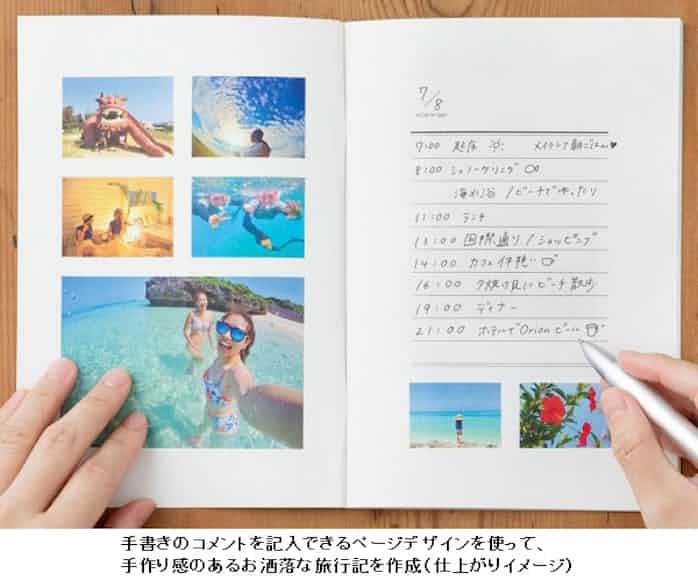 7/8
7:00 起床 メイクして朝ごはん♥
8:00 シュノーケリング
海水浴 / ビーチでゆったり
11:00 ランチ
13:00 国際通り / ショッピング
14:00 カフェ休憩
16:00 夕焼け見にビーチ散歩
19:00 ディナー
21:00 ホテルでOrionビール
手書きのコメントを記入できるページデザインを使って、
手作り感のあるお洒落な旅行記を作成(仕上がりイメージ)